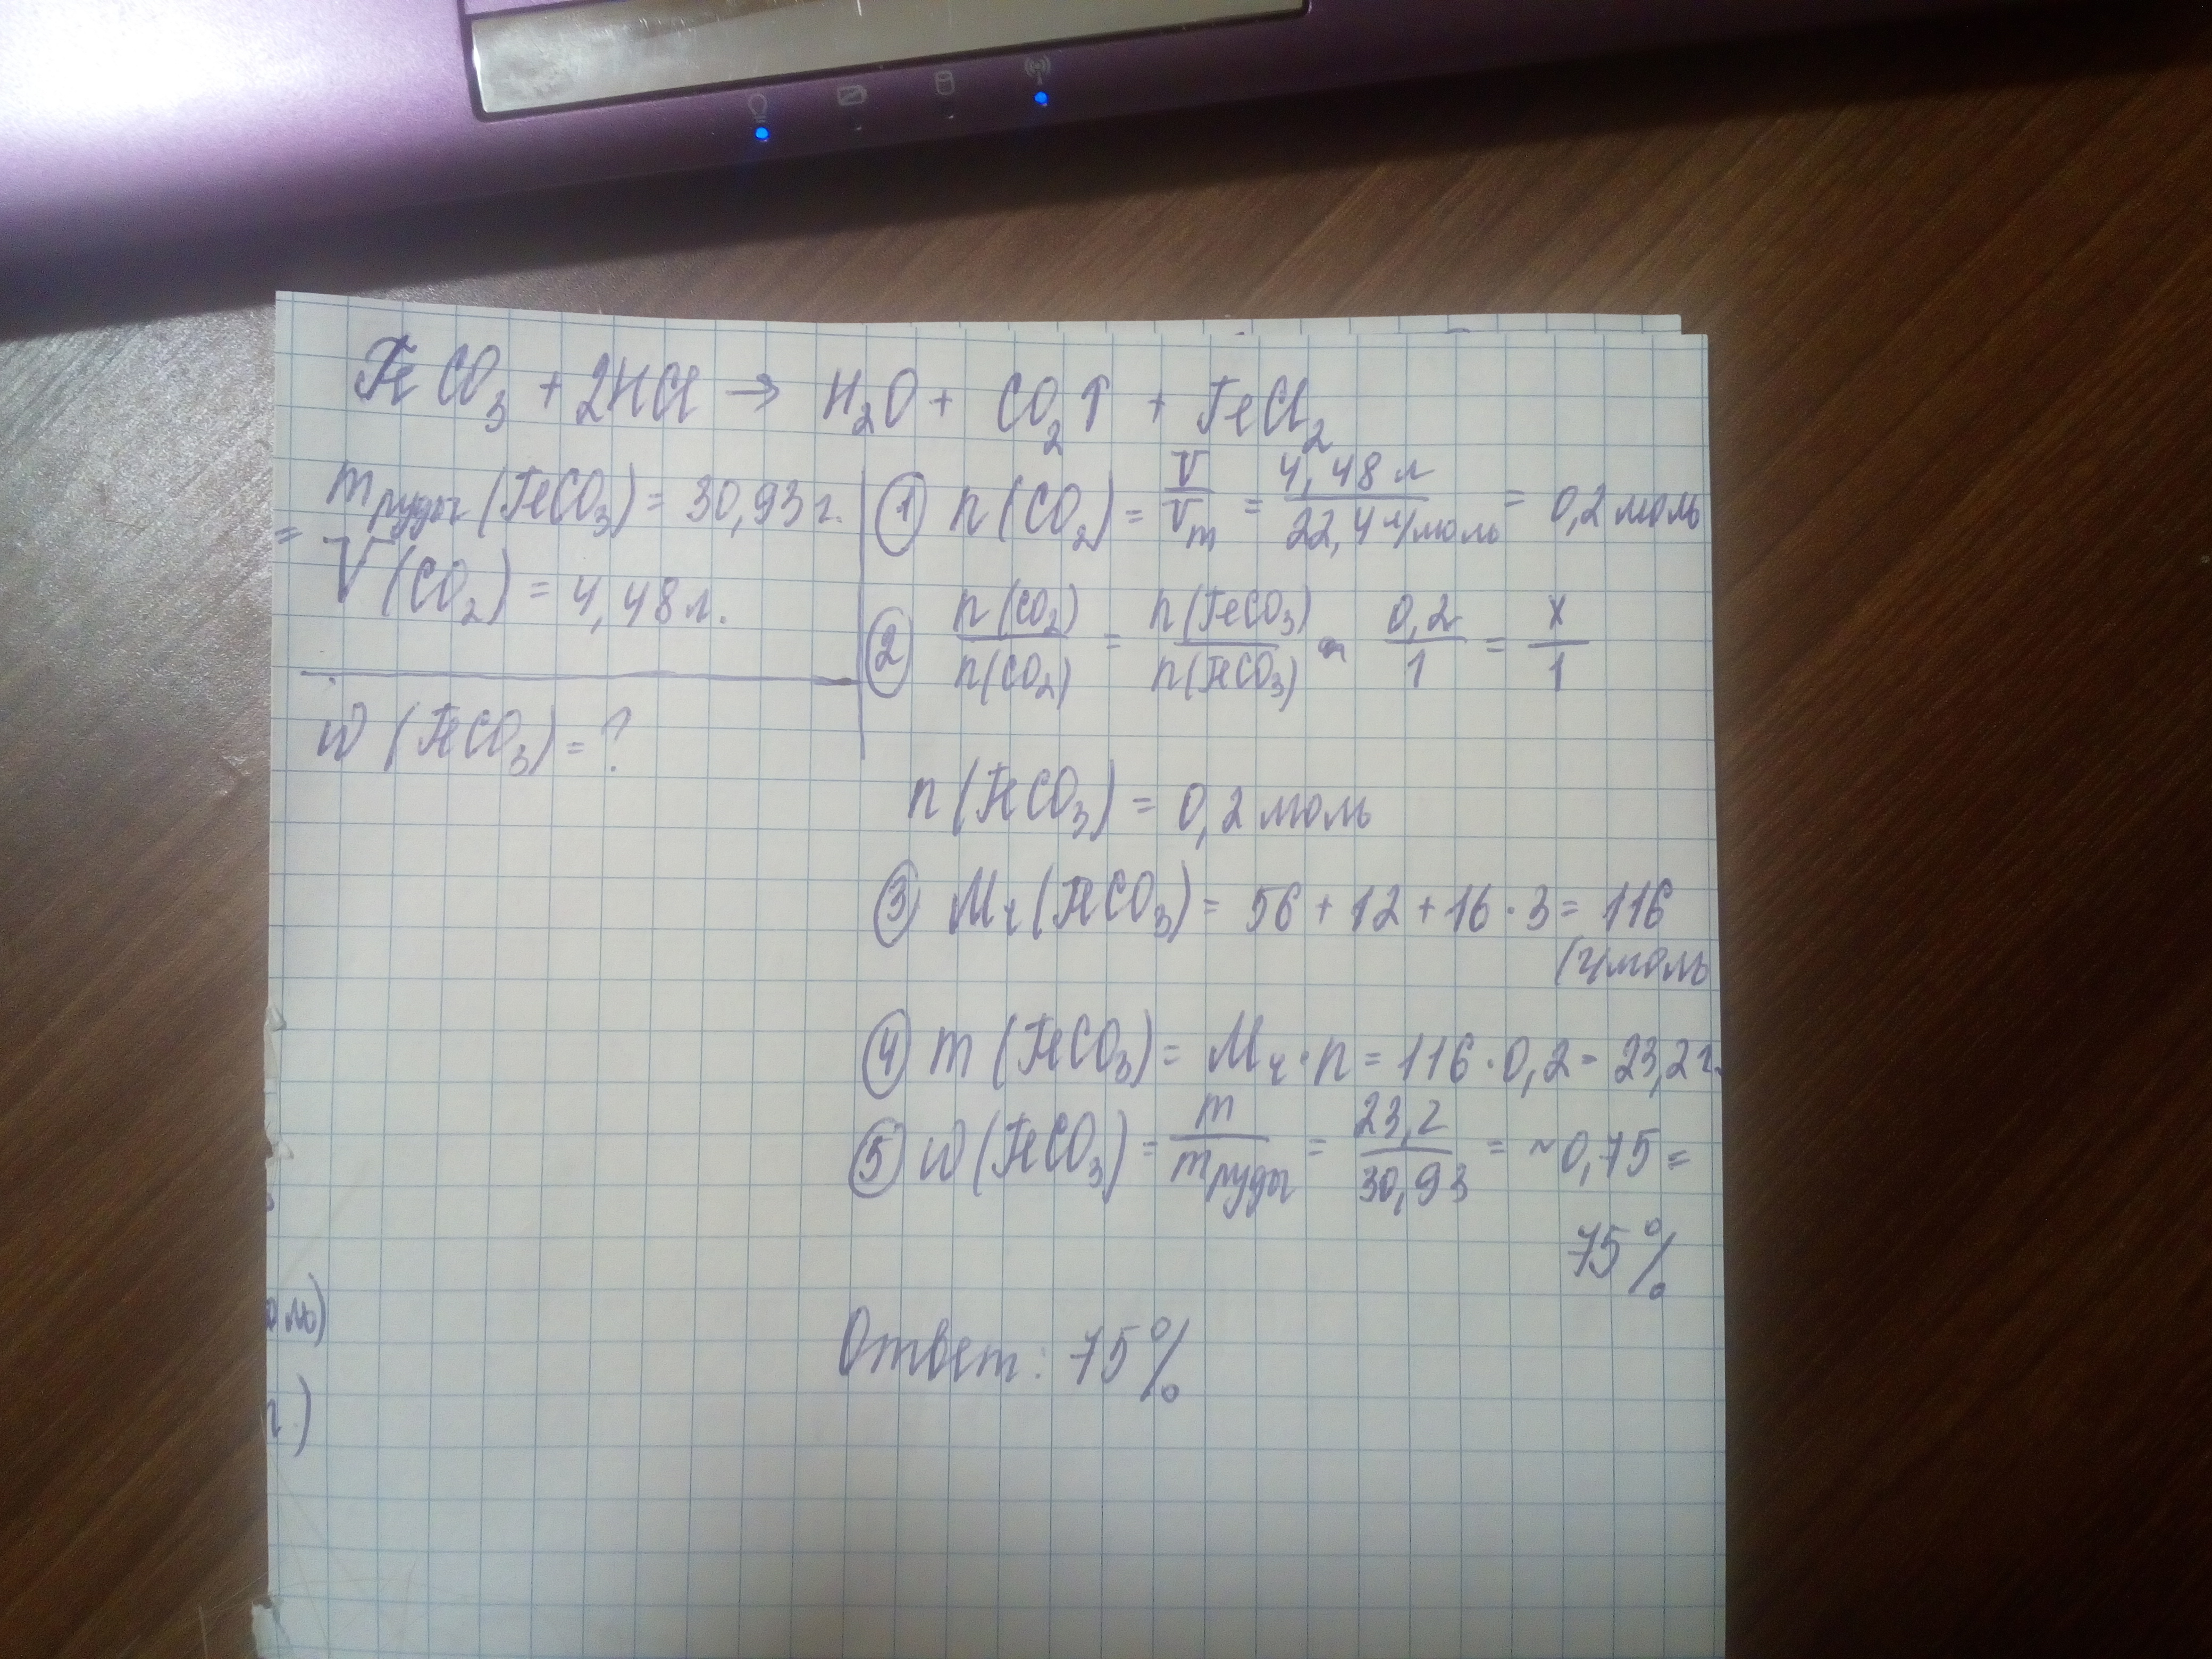 FeCO₃ + 2HCl → H₂O + CO₂↑ + FeCl₂
mруды (FeCO₃) = 30,93 г.
=
V (CO₂) = 4,48 л.
w (FeCO₃) = ?
① n (CO₂) = V/Vm = 4,48 л / 22,4 л/моль = 0,2 моль
② n (CO₂) / n (CO₂) = n (FeCO₃) / n (FeCO₃) 0,2/1 = x/1
n (FeCO₃) = 0,2 моль
③ Mr (FeCO₃) = 56 + 12 + 16 · 3 = 116
(г/моль
④ m (FeCO₃) = Mr · n = 116 · 0,2 = 23,2 г.
⑤ w (FeCO₃) = m / mруды = 23,2 / 30,93 = ~0,75 =
75%
Ответ: 75%
оль)
г.)